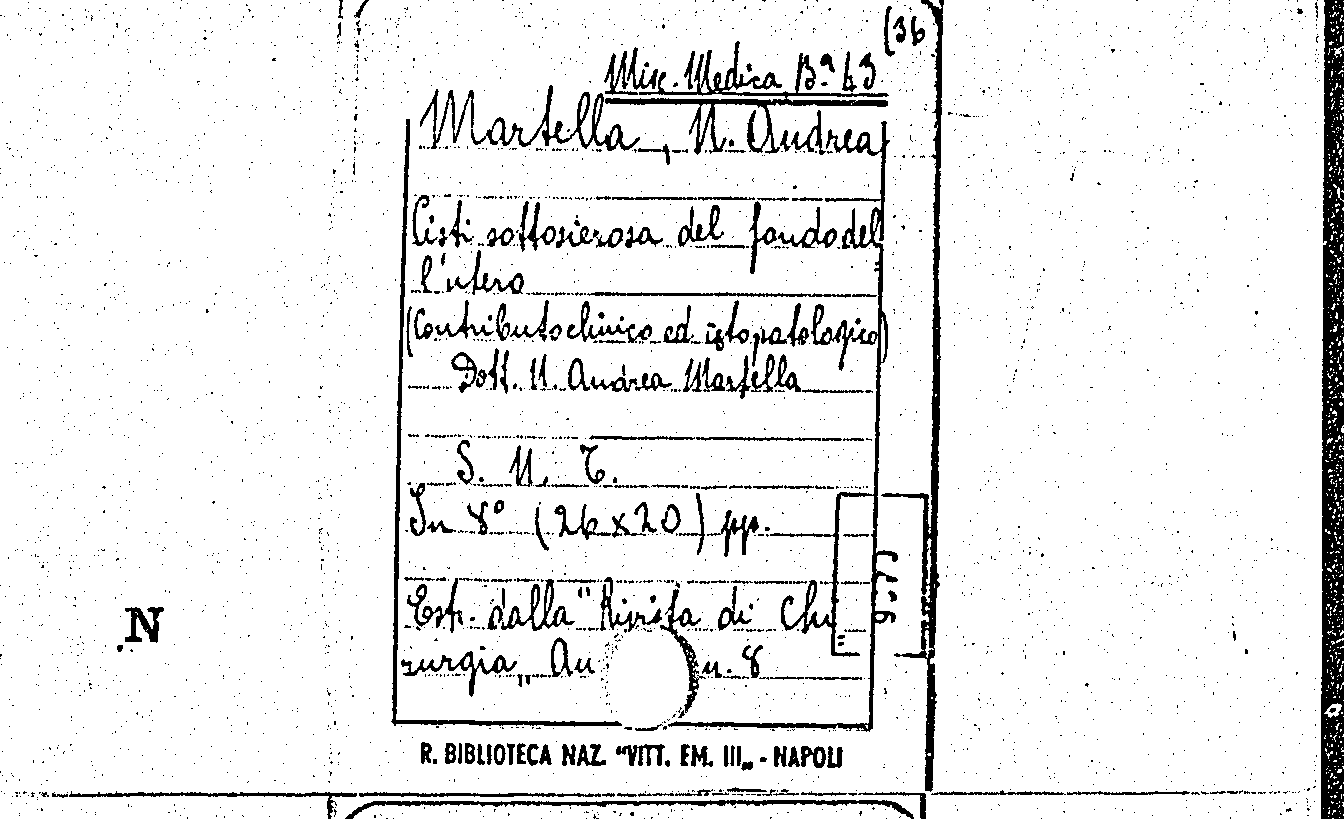 (36
Misc. Medica Bª 43
Martella, N. Andrea
Cisti sottosierosa del fondo del
l'utero
(Contributo clinico ed istopatologico)
Dott. N. Andrea Martella
S. N. T.
In 8° (26x20) pp.
Estr. dalla "Rivista di Chi=
rurgia„ An n. 8
N
R. BIBLIOTECA NAZ. “VITT. EM. III„ - NAPOLI